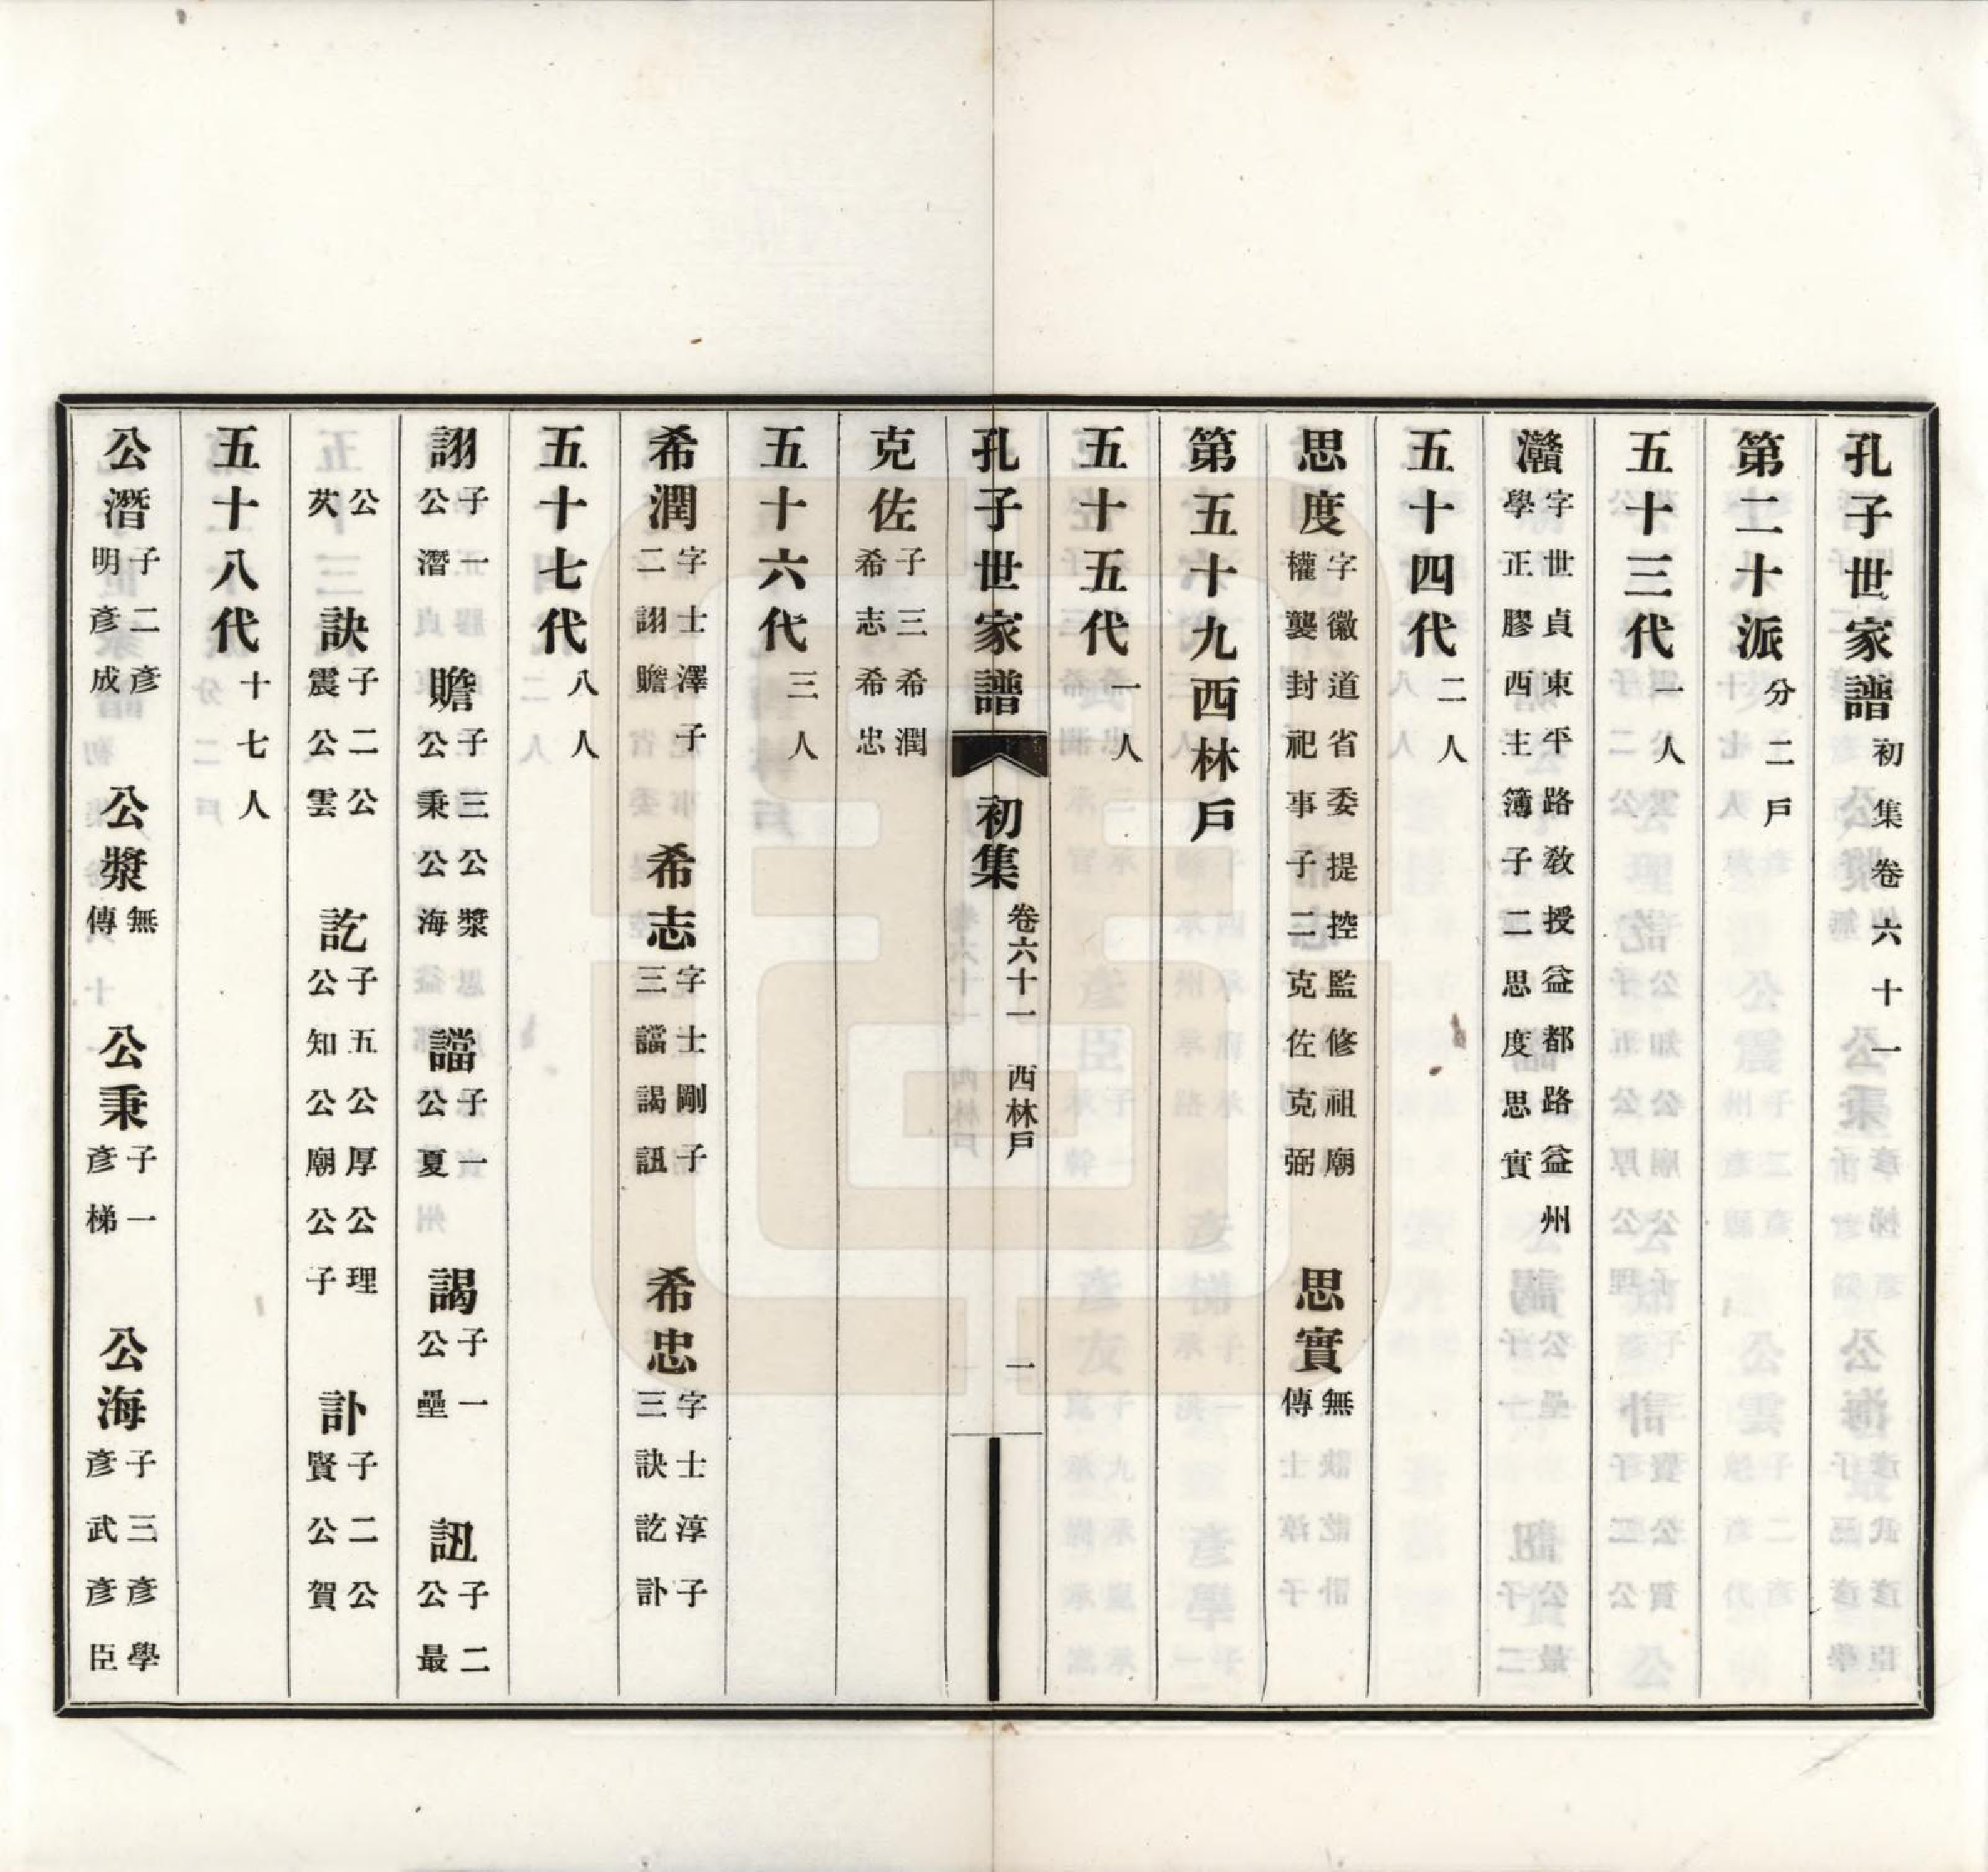 孔子世家譜初集卷六十一
第二十派分二戶
五十三代一人
灨字世貞東平路教授益都路益州學正膠西主簿子二思度思實
五十四代二人
思度字徽道省委提控監修祖廟權襲封祀事子二克佐克弼 思實無傳
第五十九西林戶
五十五代一人
孔子世家譜 初集 卷六十一 西林戶 一
克佐子三希潤希志希忠
五十六代三人
希潤字士澤子二詡贍 希志字士剛子三讜謁訊 希忠字士淳子三訣訖訃
五十七代八人
詡子一公潛 贍子三公漿公秉公海 讜子一公夏 謁子一公壘 子二公最
公炗 訣子二公震公雲 訖子五公厚公理公知公廟公子 訃子二公賢公賀
五十八代十七人
公潛子二彥明彥成 公漿無傳 公秉子一彥梯 公海子三彥學彥武彥臣